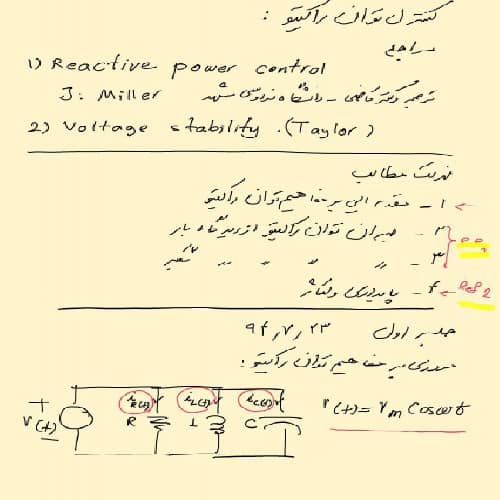 کنترل توان راکتیو :
مراجع
1) Reactive power control
J: Miller ترجمه دکتر قاضی - دانشگاه فردوسی مشهد
2) Voltage stability. (Taylor)
فهرست مطالب
۱ - مقدمه ای بر مفاهیم توان راکتیو
۲ - جبران توان راکتیو از دیدگاه بار
۳ - " " " "
۴ - پایداری ولتاژ Ref 2
جلسه اول ۹۴,۷,۲۳
مروری بر مفاهیم توان راکتیو :
+ iR(t) iL(t) iC(t)
v(t) R L C v(t) = Vm Cos ωt
-